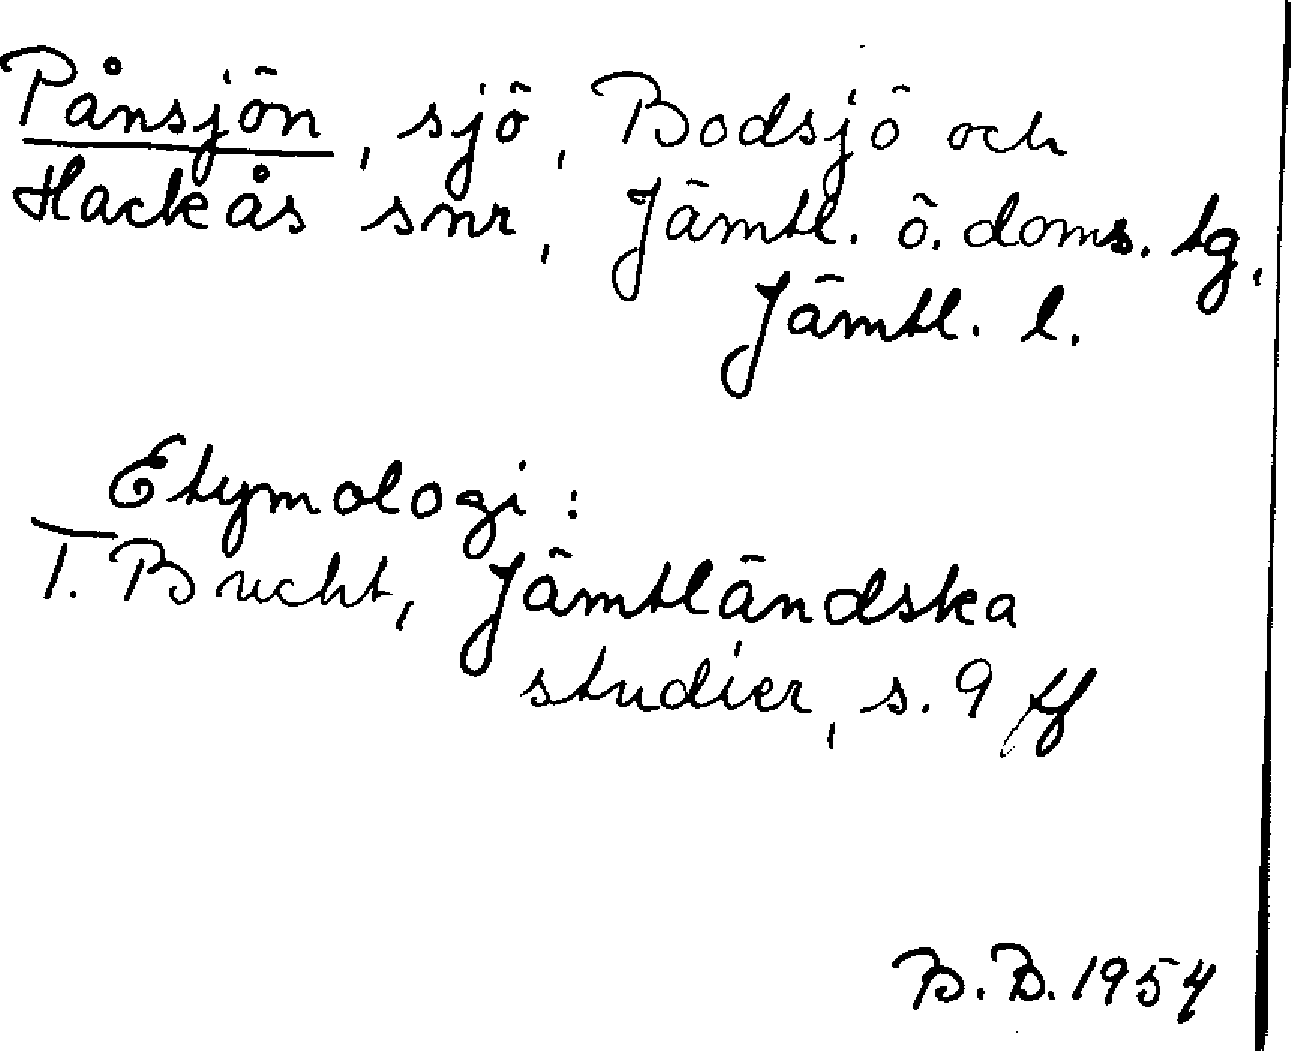 Pånsjön, sjö, Bodsjö och
Hackås snr, Jämtl. ö. doms. tg,
Jämtl. l.
Etymologi:
T. Bucht, Jämtländska
studier, s. 9 ff
B.B. 1954